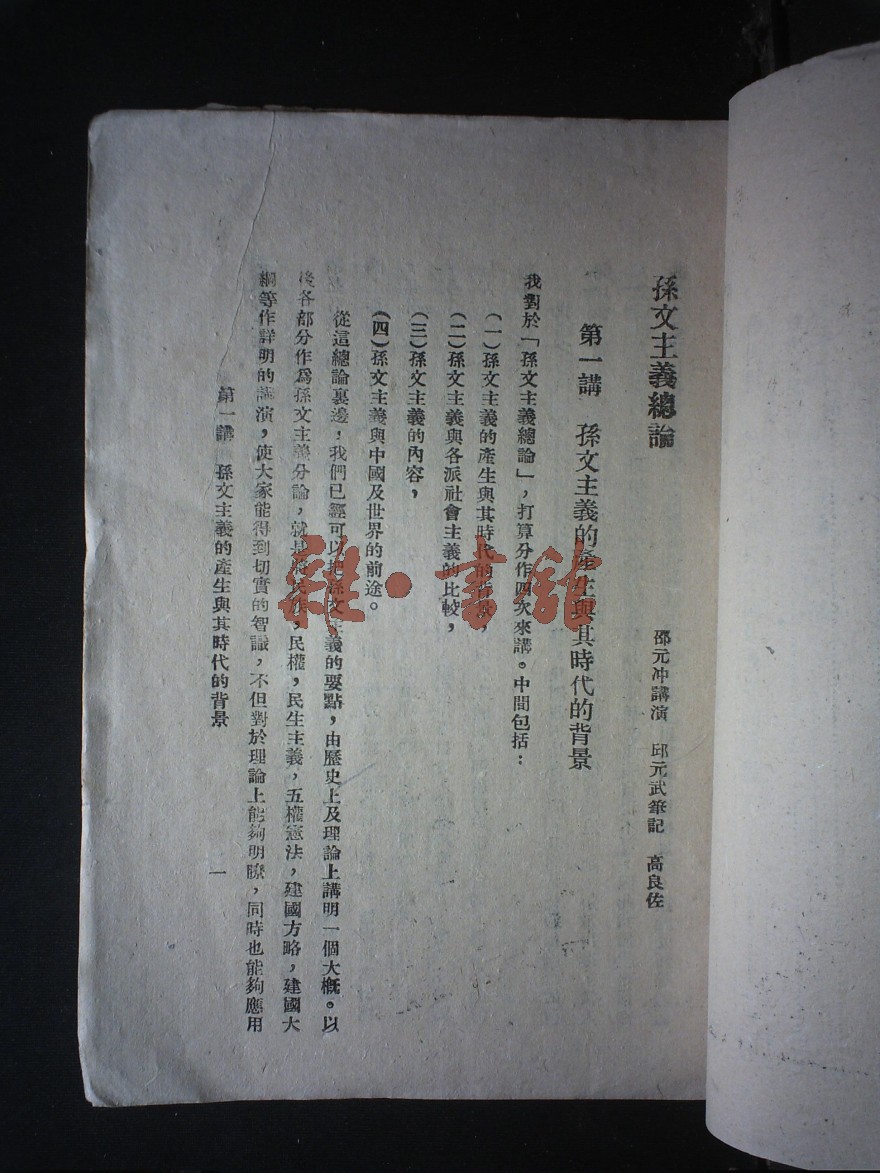 孫文主義總論
邵元冲講演 邱元武筆記 高良佐
第一講 孫文主義的產生與其時代的背景
我對於「孫文主義總論」，打算分作四次來講。中間包括：
(一)孫文主義的產生與其時代的背景，
(二)孫文主義與各派社會主義的比較，
(三)孫文主義的內容，
(四)孫文主義與中國及世界的前途。
從這總論裏邊，我們已經可以把孫文主義的要點，由歷史上及理論上講明一個大概。以
後各部分作爲孫文主義分論，就是將民族，民權，民生主義，五權憲法，建國方略，建國大
綱等作詳明的講演，使大家能得到切實的智識，不但對於理論上能夠明瞭，同時也能夠應用
第一講 孫文主義的產生與其時代的背景
一
雜·書館